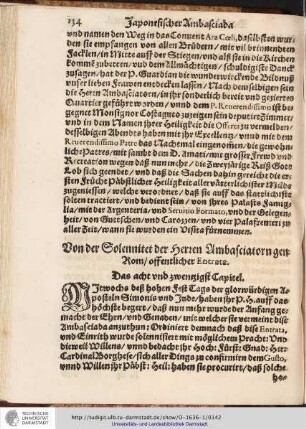 134 Japonesischer Ambasciada
und namen den Weg in das Convent Ara Cœli, daselbsten wurden
sie empfangen von allen Brüdern / mit vil brinnendten
Facklen / in Mitte auff der Stiegen / und als sie in die Kirchen
kommen zubetten / und dem Allmächtigen / schuldigiste Danck
zusagen / hat der P. Guardian die wunderwirckende Bildnuß
unser lieben Frawen entdecken lassen / Nach dem selbigen sein
die Herrn Ambasciatorn / in ihr sonderlich bereit und gezierten
Quartier geführt worden / unnd dem P. Reverendissimo ist
gegnet Monsignor Costaguto zuzeigen sein deputirtes Zimmer /
und in dem Namen ihrer Heiligkeit die Offerta zu vermelden /
desselbigen Abendts haben mit ihr Excellenz / ihr und mit dem
Reverendissimo Patre das Nachemal eingenomen / die gewohnliche
Patres / mit sambt dem D. Amati / mit grosser Frewd und
Recreation wegen daß nun mehr / die Zweyjärige Raiß Gott
Lob sich geendet / und daß die Sachen dahin gereicht die ersten
Frücht Päbstlicher Heiligkeit aller vätterlichister Milde
zugeniessen / welche verordnet / daß sie auff das stattlichist
solten tractiert / und bedient sein / von ihres Palasts Famiglia /
mit der Argenteria, und Servitio Formato, und der Gelegenheit /
von Gutschen / und Carozzen / und vier Palafrenieri zu
aller Zeit / wann sie wurden ein Visita fürnemmen.
Von der Solennitet der Herren Ambasciatorn gen
Rom / offentlicher Entrata.
Das acht und zwentzigist Capitel.
Mitwochs deß hohen Fest Tags der glorwürdigen Apostelen
Simonis und Jude / haben ihr P. H. auff das
höchste begert / daß nun mehr wurde der Anfang gemacht
der Ehrn / und Genaden / mit welcher sie vermeint diese
Ambasciada anzuthun: Ordiniere demnach daß diß Entrata,
und Einrith wurde solennisiert mit möglichem Pracht: Und
dieweil Willens / und bedacht ihr Hoch: Fürst: Gnad: Herr
Cardinal Borghese / sich aller Dings zu confirmirn dem Gusto,
unnd Willen ihr Päbst: Heil: haben sie procuriert / daß solche
ho-
TECHNISCHE
UNIVERSITÄT
DARMSTADT
http://tudigit.ulb.tu-darmstadt.de/show/0-1636-1/0342
Universitäts- und Landesbibliothek Darmstadt